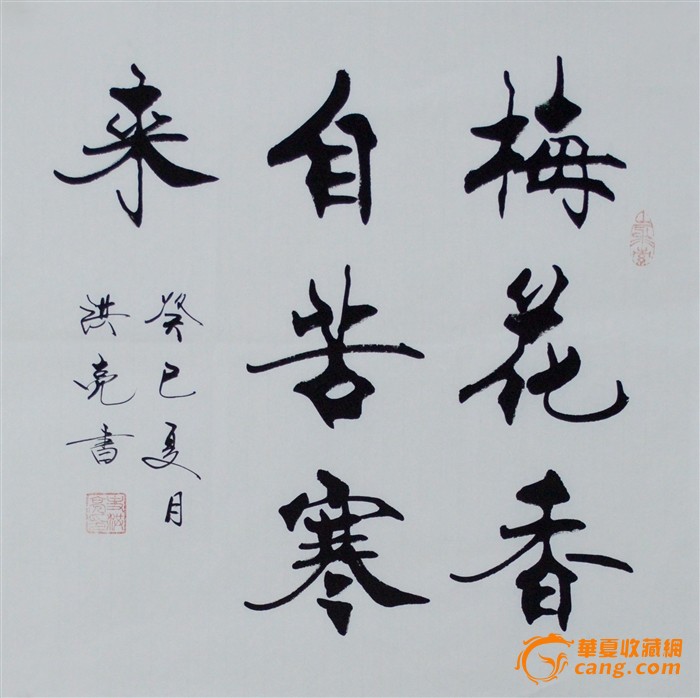 梅花香
自苦寒
来
癸巳夏月
洪亮书
華夏收藏網
cang.com